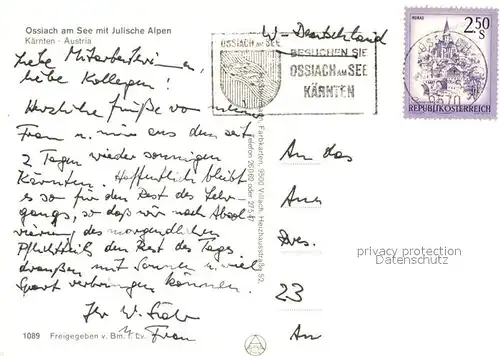 Ossiach am See mit Julische Alpen
Kärnten · Austria
W-Deutschland
Liebe Mitarbeiterinnen,
liebe Kollegen!
Herzliche Grüße von meiner
Frau u. mir aus dem seit
2 Tagen wieder sonnigen
Kärnten. Hoffentlich bleibt
es so für den Rest des Lehr-
gangs, so daß wir nach Absol-
vierung des morgendlichen
Pflichtteils den Rest des Tages
draußen mit Sonnen u. viel
Sport verbringen können.
Ihr W.
u. Frau
1089 Freigegeben v. Bm. f. Lv.
OSSIACH AM SEE
BESUCHEN SIE
OSSIACH AM SEE
KÄRNTEN
MURAU
2.50
S
REPUBLIK ÖSTERREICH
9570
Farbkarten, 9500 Villach, Herzhausstraße 52,
Telefon
An das
23
An
privacy protection
Datenschutz